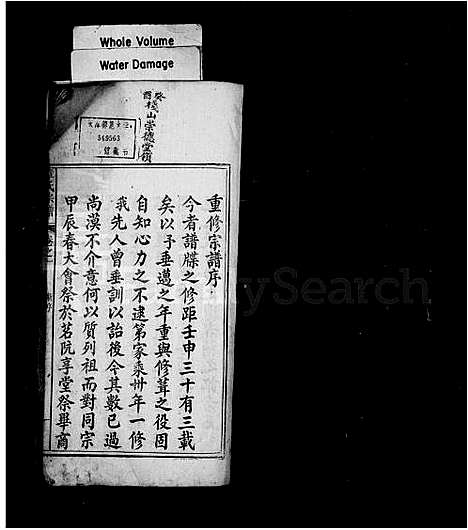 Whole Volume
Water Damage
癸酉
棧山崇德堂領
349563
重修宗譜序
今者譜牒之修距壬申三十有三載
矣以予垂邁之年重與修葺之役固
自知心力之不逮第家乘卅年一修
我先人曾垂訓以詒後今其數已過
尚漠不介意何以質列祖而對同宗
甲辰春大會祭於茗阮享堂祭畢商